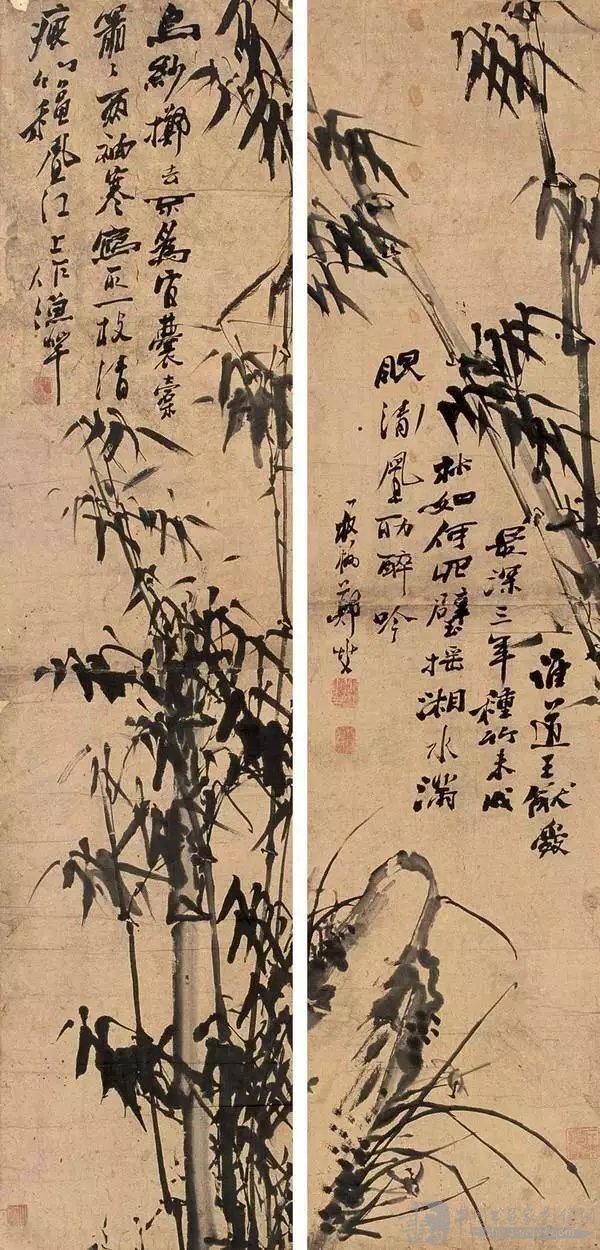 誰道王猷
最深三年種竹未成
林如何壁搖湘水滿
眼清風助醉吟
板橋鄭燮
烏紗擲去不為官囊橐
蕭蕭兩袖寒寫取一枝清
瘦竹秋風江上作漁竿